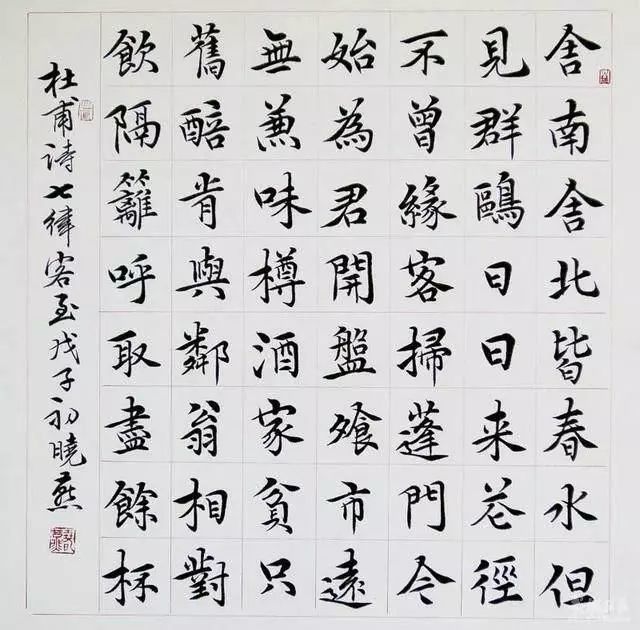 舍南舍北皆春水但
見群鷗日日来花徑
不曾緣客掃蓬門今
始為君開盤飱市遠
無兼味樽酒家貧只
舊醅肯與鄰翁相對
飲隔籬呼取盡餘杯
杜甫詩七律客至戊子初曉燕